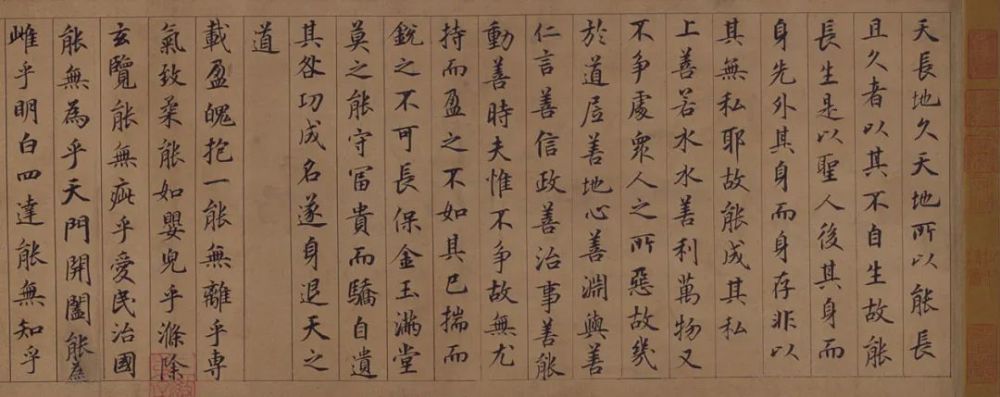 天長地久天地所以能長
且久者以其不自生故能
長生是以聖人後其身而
身先外其身而身存非以
其無私耶故能成其私
上善若水水善利萬物又
不争處衆人之所惡故幾
於道居善地心善淵與善
仁言善信政善治事善能
動善時夫惟不争故無尤
持而盈之不如其已揣而
銳之不可長保金玉滿堂
莫之能守富貴而驕自遺
其咎功成名遂身退天之
道
載盈魄抱一能無離乎専
氣致柔能如嬰兒乎滌除
玄覽能無疵乎愛民治國
能無為乎天門開闔能為
雌乎明白四達能無知乎